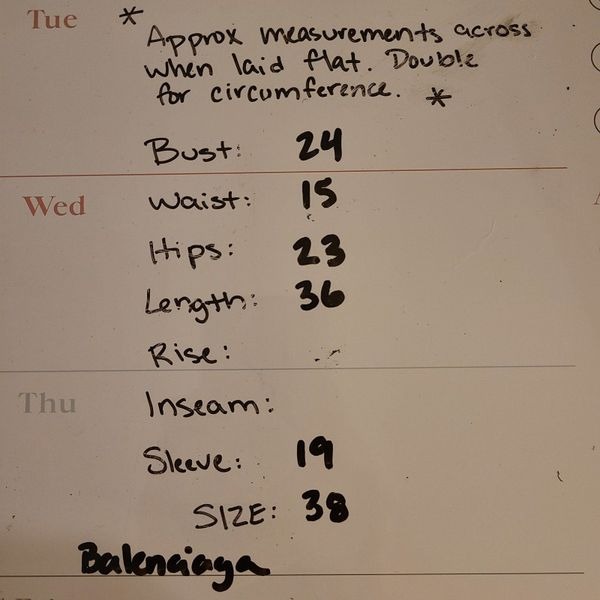 Tue
* Approx measurements across
when laid flat. Double
for circumference. *
Bust: 24
Wed
Waist: 15
Hips: 23
Length: 36
Rise:
Thu
Inseam:
Sleeve: 19
SIZE: 38
Balenciaga